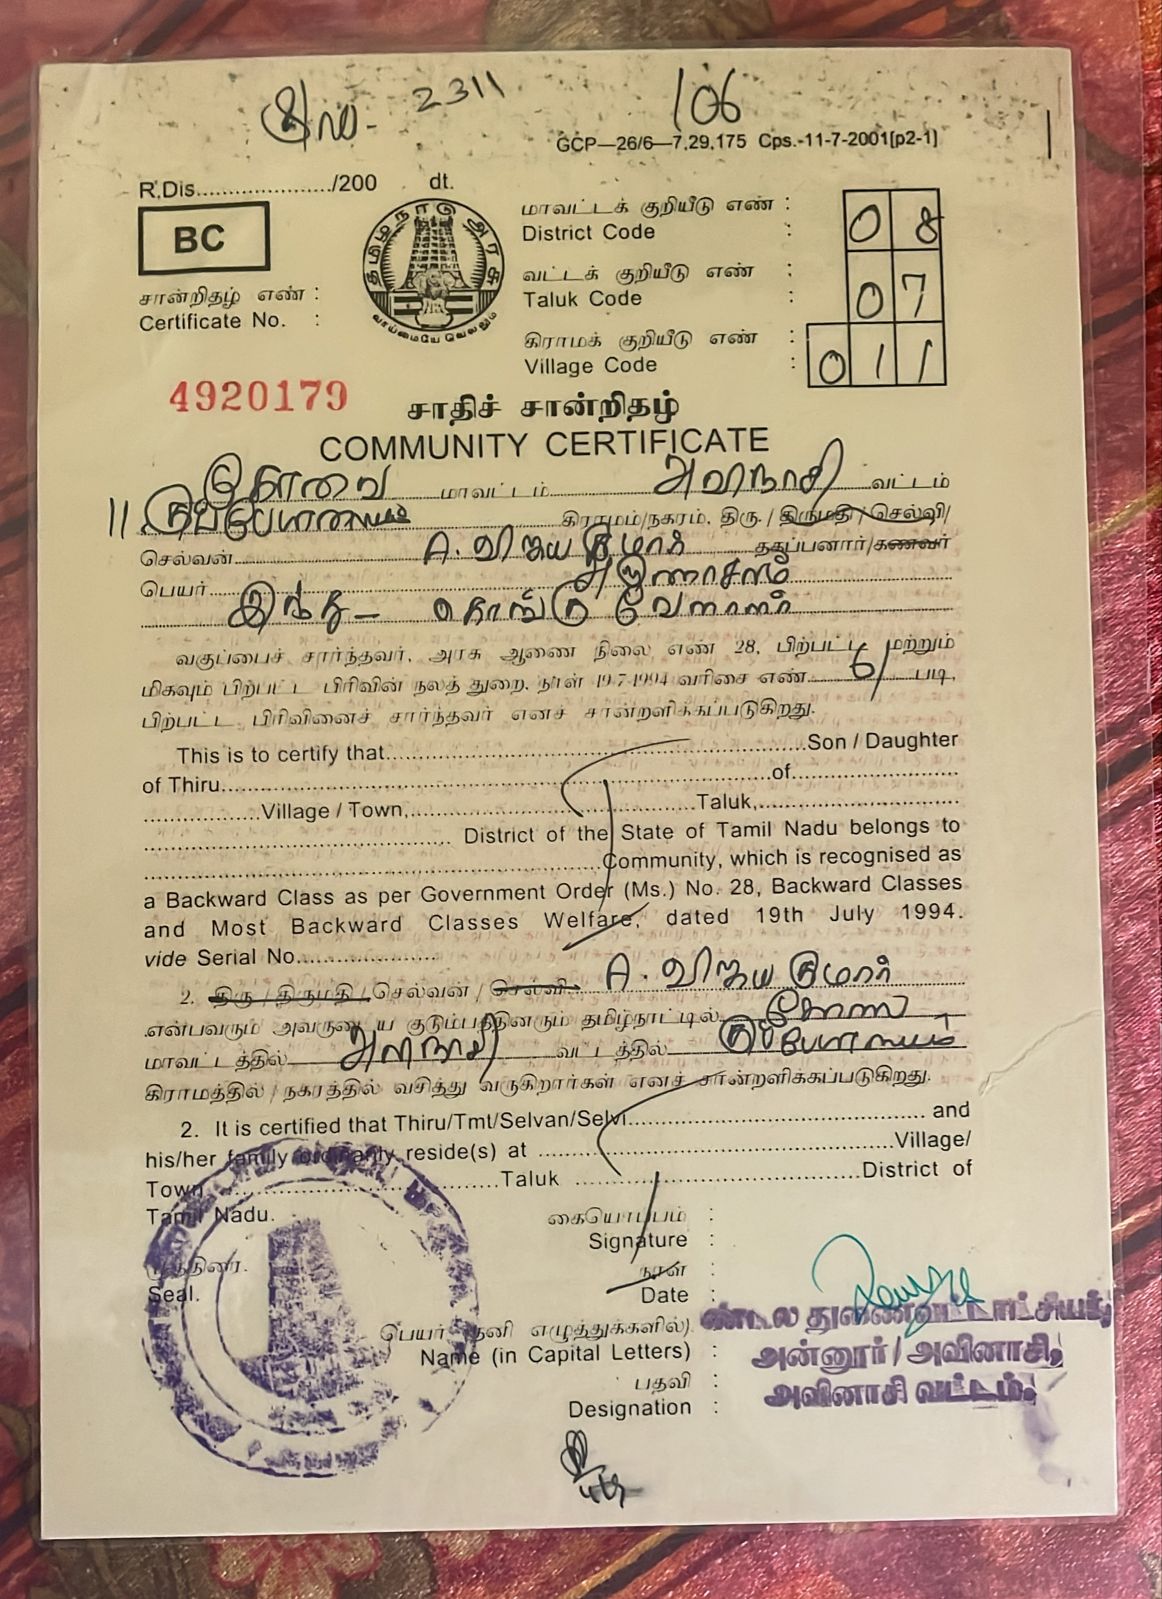 2311
106
GCP—26/6—7,29,175 Cps.-11-7-2001[p2-1]
R.Dis...................../200 dt.
BC
தமிழ்நாடு அரசு
வாய்மையே வெல்லும்
மாவட்டக் குறியீடு எண் :
District Code : 08
வட்டக் குறியீடு எண் :
Taluk Code : 07
கிராமக் குறியீடு எண் :
Village Code : 011
சான்றிதழ் எண் :
Certificate No. :
4920179
சாதிச் சான்றிதழ்
COMMUNITY CERTIFICATE
கோவை மாவட்டம் அவிநாசி வட்டம்
11 குப்பேபாளையம் கிராமம்/நகரம். திரு. / திருமதி / செல்வி/
செல்வன் A. விஜயகுமார் தகப்பனார்/கணவர்
பெயர் அருணாசலம்
இந்து - கொங்கு வேளாளர்
வகுப்பைச் சார்ந்தவர், அரசு ஆணை நிலை எண் 28, பிற்பட்ட மற்றும்
மிகவும் பிற்பட்ட பிரிவின் நலத் துறை, நாள் 19.7.1994 வரிசை எண் படி,
பிற்பட்ட பிரிவினைச் சார்ந்தவர் எனச் சான்றளிக்கப்படுகிறது.
This is to certify that..........Son / Daughter
of Thiru..........of..........
..........Village / Town,..........Taluk,..........
.......... District of the State of Tamil Nadu belongs to
..........Community, which is recognised as
a Backward Class as per Government Order (Ms.) No. 28, Backward Classes
and Most Backward Classes Welfare, dated 19th July 1994.
vide Serial No..........
2. திரு / திருமதி / செல்வன் / செல்வி A. விஜயகுமார்
என்பவரும் அவருடைய குடும்பத்தினரும் தமிழ்நாட்டில் கோவை
மாவட்டத்தில் அவிநாசி வட்டத்தில் குப்பேபாளையம்
கிராமத்தில் / நகரத்தில் வசித்து வருகிறார்கள் எனச் சான்றளிக்கப்படுகிறது.
2. It is certified that Thiru/Tmt/Selvan/Selvi.......... and
his/her family ordinarily reside(s) at ..........Village/
Town ..........Taluk ..........District of
Tamil Nadu.
கையொப்பம் :
Signature :
முத்திரை.
நாள் :
Seal.
Date :
மண்டல துணைவட்டாட்சியர்,
பெயர் (தனி எழுத்துக்களில்)
Name (in Capital Letters) : அன்னூர் / அவினாசி,
பதவி :
அவினாசி வட்டம்.
Designation :